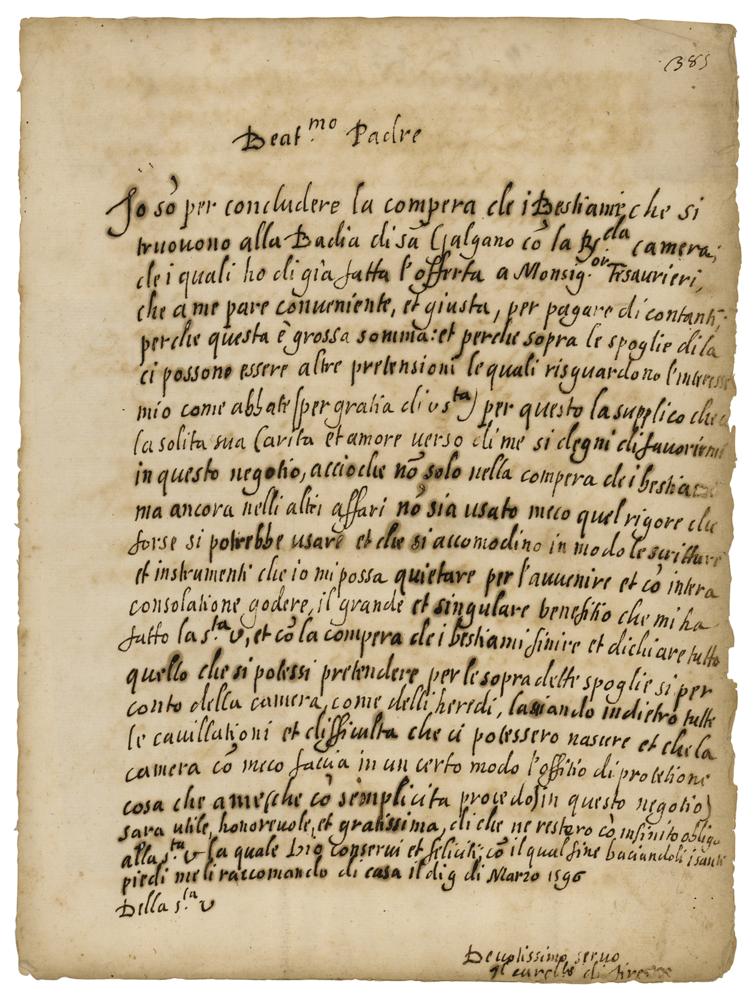 385
Beat.mo Padre
Io sõ per concludere la compera de i Bestiami, che si
truovono alla Badia di sã Galgano cõ la camera,
de i quali ho di già fatta l'offerta a Monsig.or Tesaurieri,
che a me pare conveniente, et giusta, per pagare di contanti,
perche questa è grossa somma: et perche sopra le spoglie di la
ci possono essere altre pretensioni le quali risguardono l'interesse
mio come abbate (per gratia di v sta) per questo la supplico che
la solita sua Carita et amore verso di me si degni di favorirmi
in questo negotio, accioche nõ solo nella compera de i bestiami
ma ancora nelli altri affari nõ sia usato meco quel rigore che
forse si potrebbe usare et che si accomodino in modo le scritture
et instrumenti che io mi possa quietare per l'avvenire et cõ intera
consolatione godere, il grande et singulare benefitio che mi ha
fatto la s.ta v, et cõ la compera de i bestiami finire et dichiare tutto
quello che si potessi pretendere per le sopra dette spoglie si per
conto della camera, come delli heredi, lasiando indietro tutte
le cavillationi et difficulta che ci potessero nascere et che la
camera cõ meco faccia in un certo modo l'offitio di protetione
cosa che a me (che cõ semplicita procedo in questo negotio)
sara utile, honorevole, et gratissima, di che ne restero cõ infinito obligo
alla s.ta v la quale Dio conservi et feliciti, cõ il qual fine baciandoli i santi
piedi me li raccomando di casa il di 9 di Marzo 1596
Della s.ta v
Devotissimo servo
di